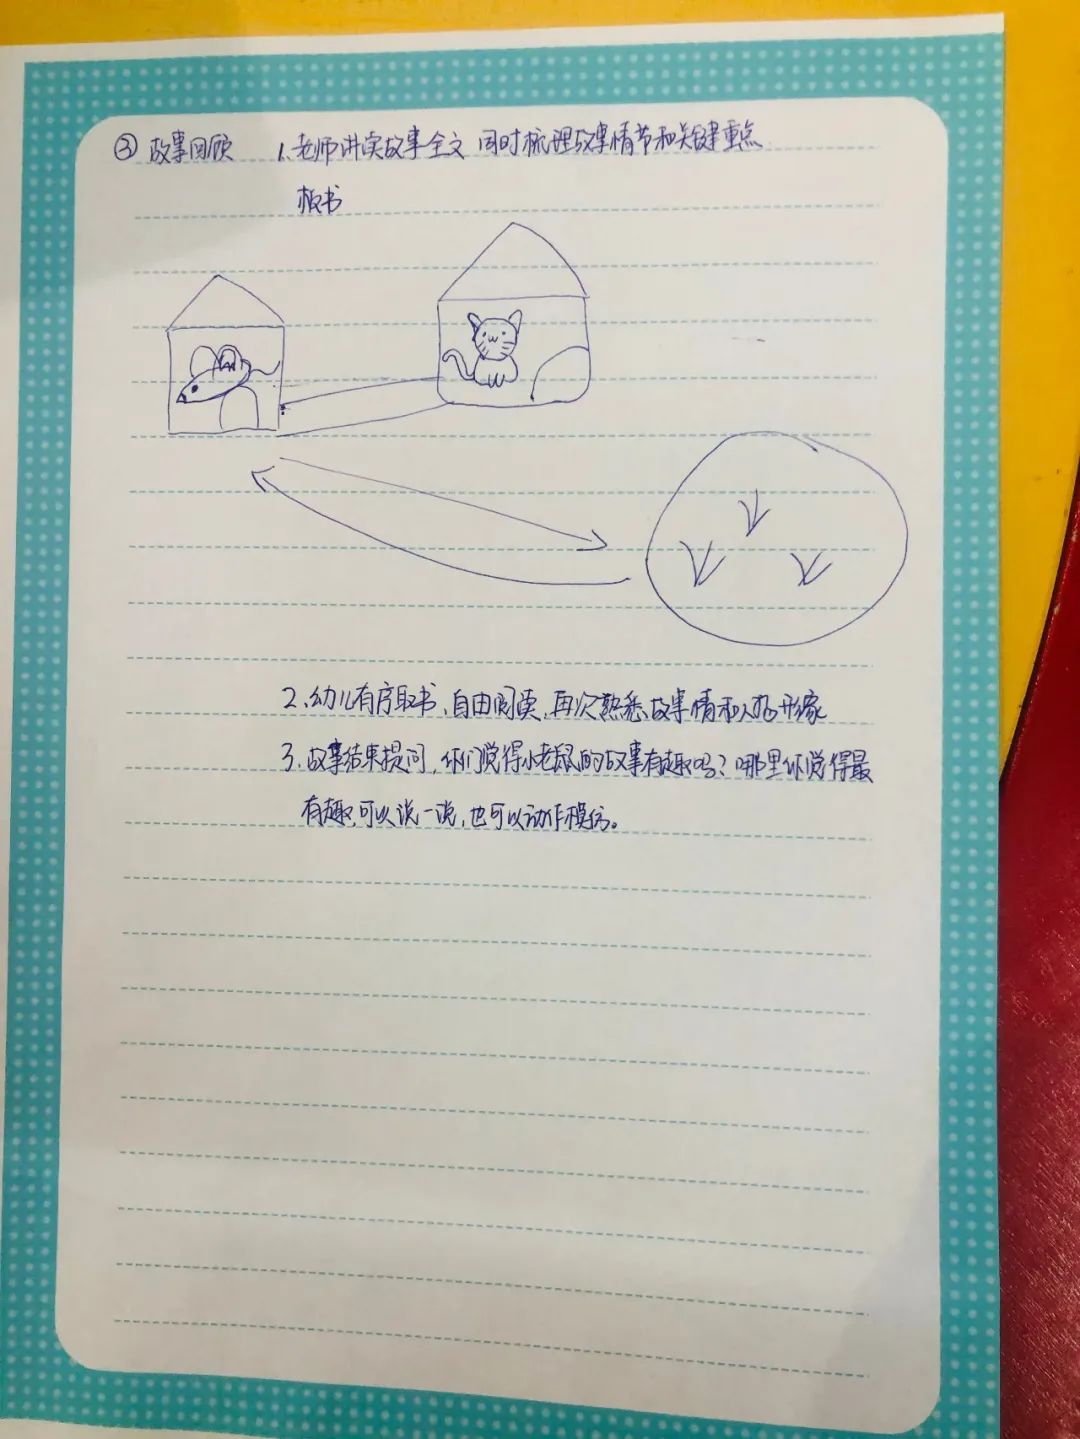 ③ 故事回顾 1、老师讲读故事全文 同时梳理故事情节和关键重点
板书
2、幼儿有序取书、自由阅读,再次熟悉故事情和人物形象
3、故事结束提问,你们觉得小老鼠的故事有趣吗?哪里你觉得最
有趣可以说一说,也可以动作模仿。